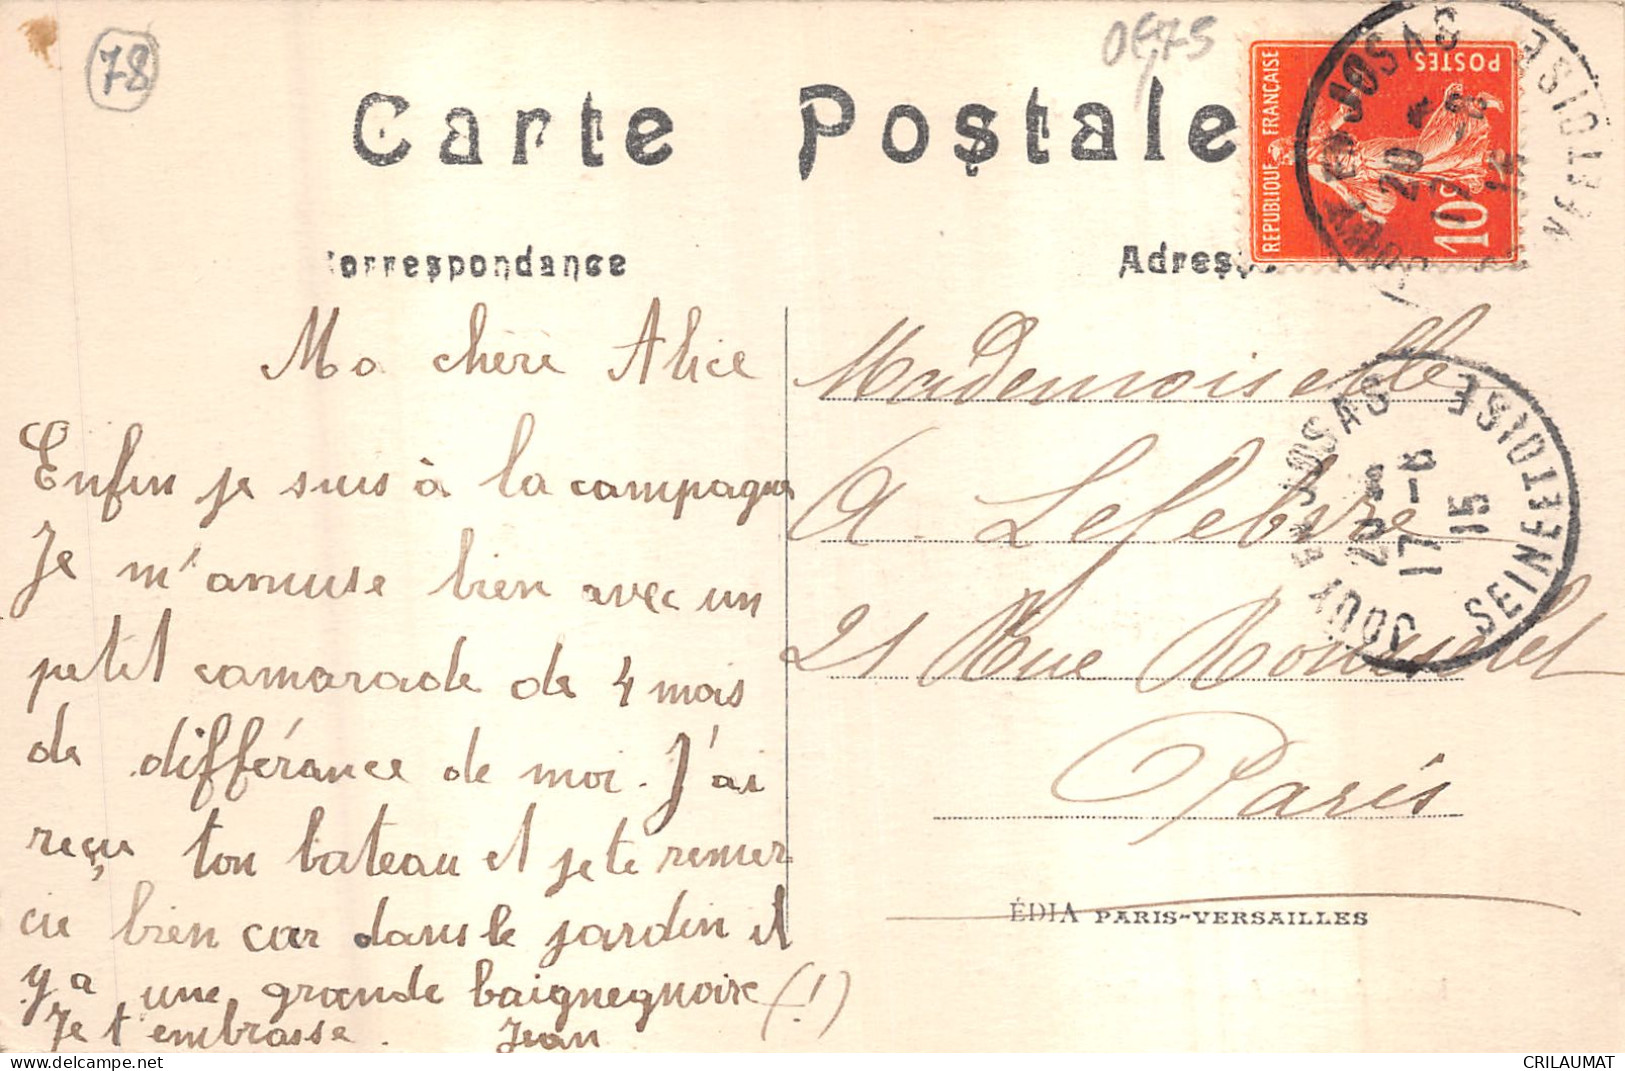 78
0475
Carte Postale
Correspondance
Adresse
REPUBLIQUE FRANÇAISE
POSTES
10c
JOUY EN JOSAS
SEINE ET OISE
20
17-6
15
Ma chère Alice
Enfin je suis à la campagne
Je m'amuse bien avec un
petit camarade de 4 mois
de différance de moi. J'ai
reçu ton bateau et je te remer
cie bien car dans le jardin il
y a une grande baignegnoire (!)
Je t'embrasse. Jean
Mademoiselle
A. Lefebvre
21 Rue Rousselet
Paris
JOUY EN JOSAS
SEINE ET OISE
20
17-6
15
ÉDIA PARIS-VERSAILLES
CRILAUMAT